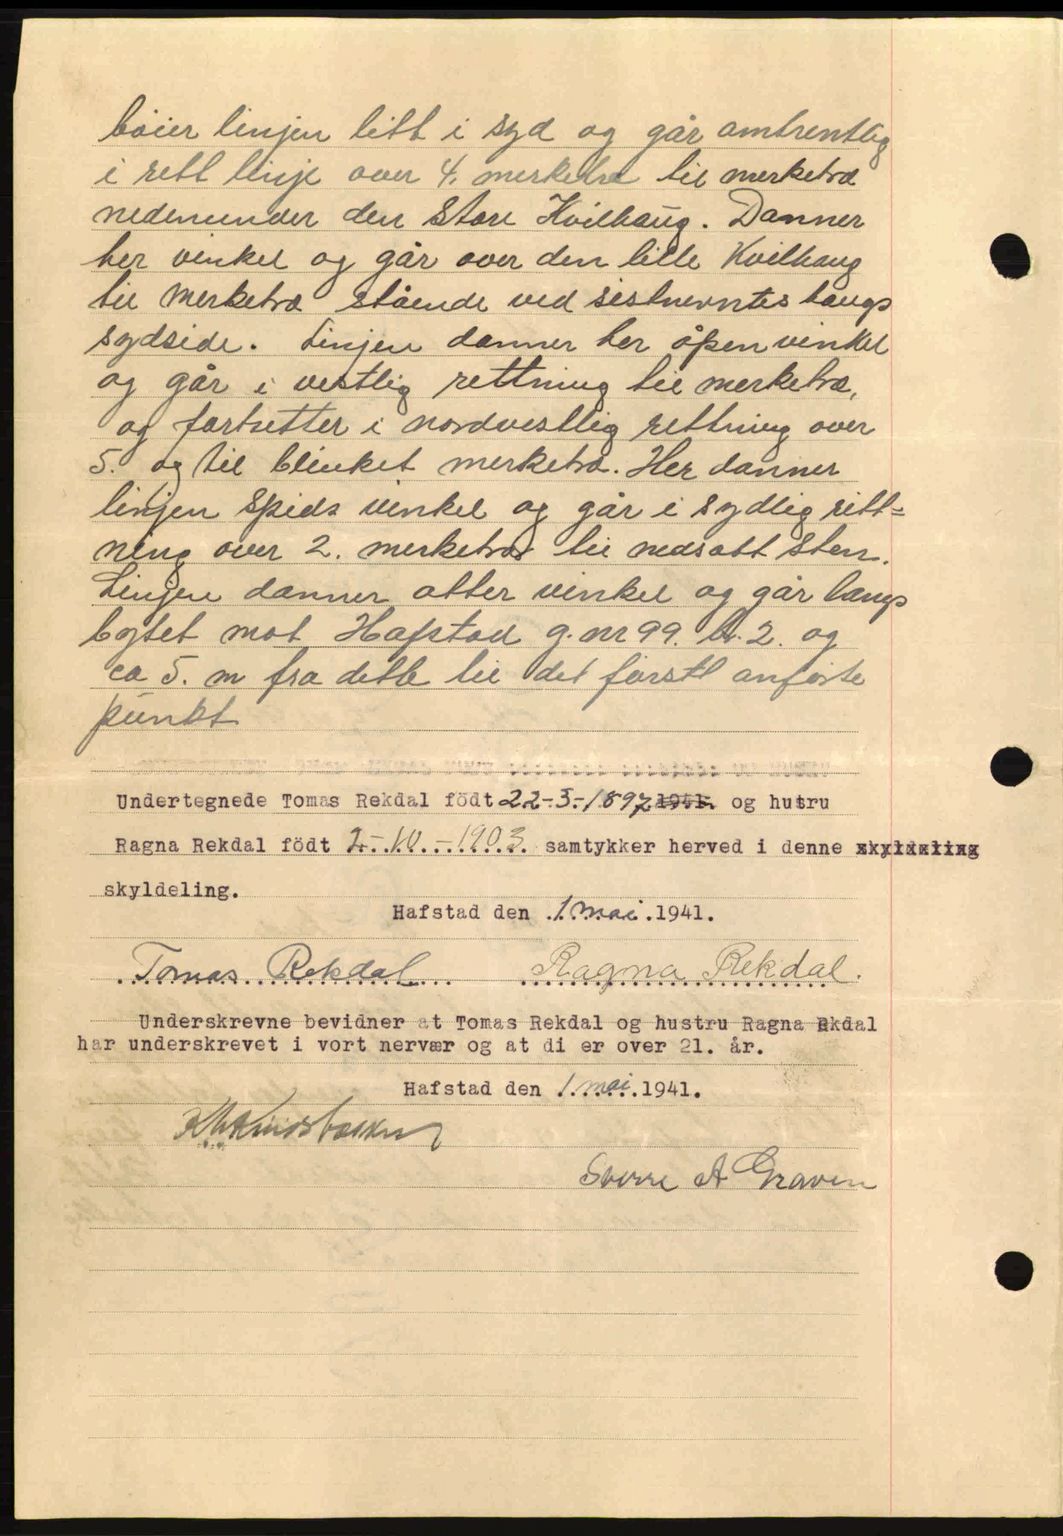 böier linjen litt i syd og går omtrentlig
i rett linje over 4. merketræ til merketræ
nedenunder den Store Kvilhaug. Danner
her vinkel og går over den lille Kvilhaug
til merketræ stående ved sistnevntes haugs
sydside. Linjen danner her åpen vinkel
og går i vestlig rettning til merketræ,
og fortsetter i nordvestlig rettning over
5. og til blinket merketræ. Her danner
linjen spids vinkel og går i sydlig rett=
ning over 2. merketrær til nedsatt sten.
Linjen danner atter vinkel og går langs
bytet mot Hafstad g.nr 99. br. 2. og
ca 5. m fra dette til det først anförte
punkt
Undertegnede Tomas Rekdal födt 22-3.-1897 1941. og hutru
Ragna Rekdal födt 2.-10.-1903. samtykker herved i denne skyldeling
skyldeling.
Hafstad den 1. mai 1941.
Tomas Rekdal Ragna Rekdal.
Underskrevne bevidner at Tomas Rekdal og hustru Ragna Rkdal
har underskrevet i vort nervær og at di er over 21. år.
Hafstad den 1. mai 1941.
Sverre A Graven